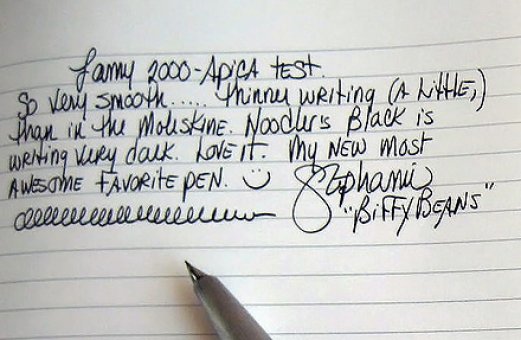 Lamy 2000 - Apica test.
So very smooth..... thinner writing (a little,)
than in the Moleskine. Noodler's Black is
writing very dark. Love it. My new most
awesome favorite pen. ☺ Stephanie
"Biffybeans"